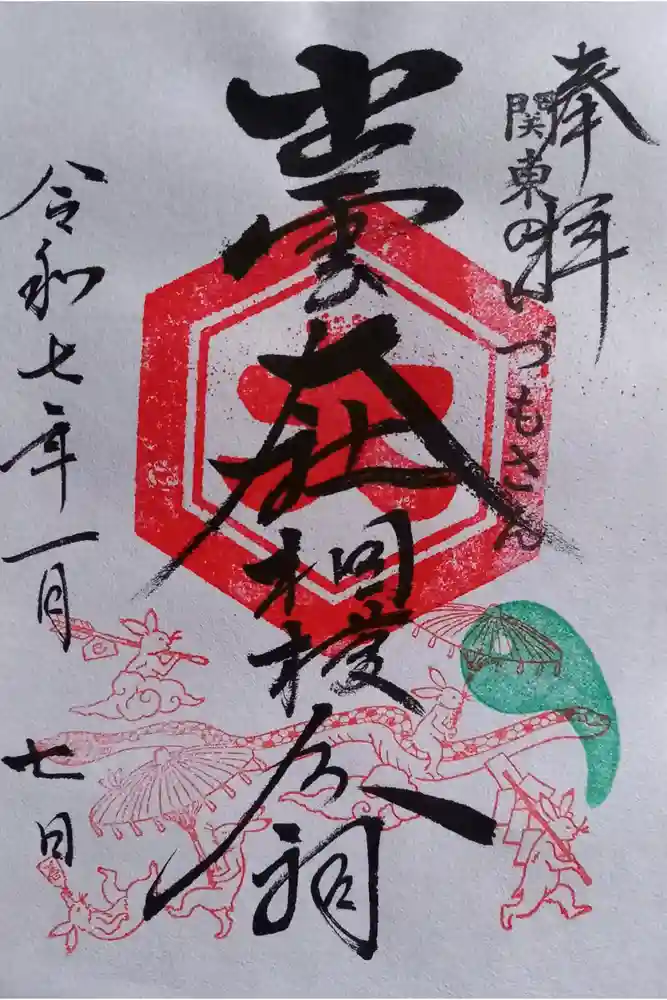 奉拝
関東のいづもさん
出雲大社相模分祠
令和七年一月
七日
大